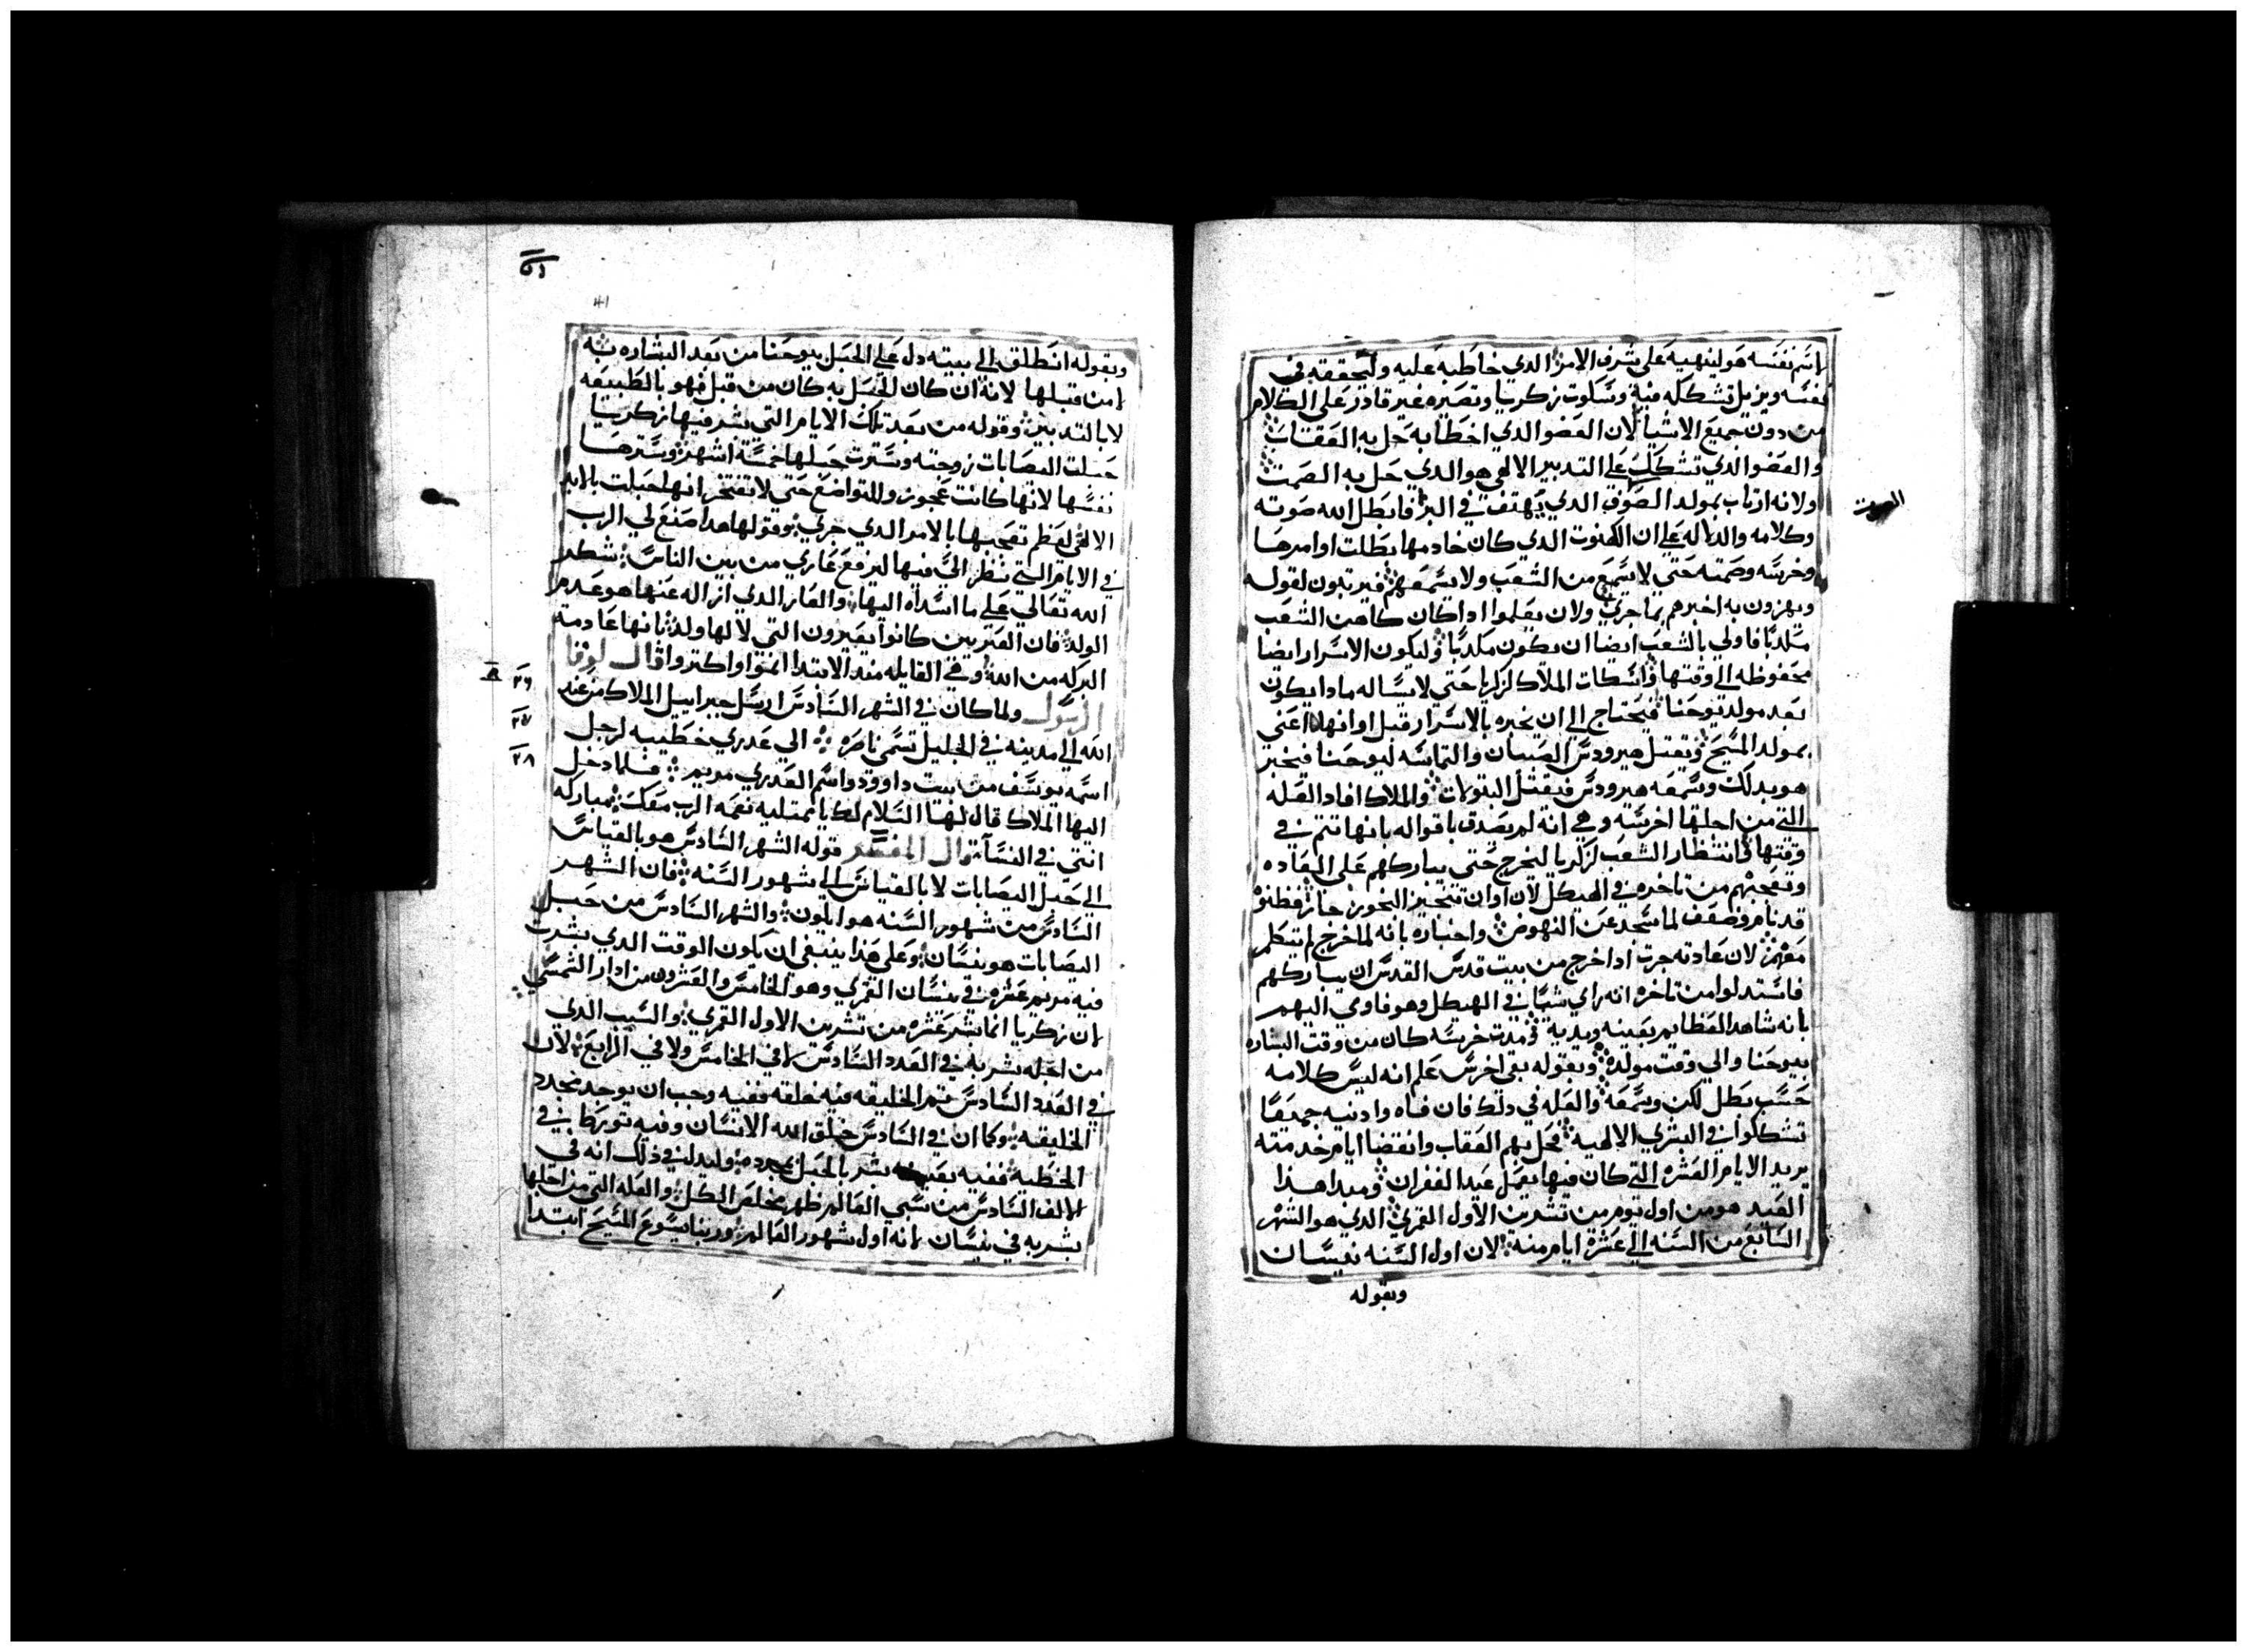 اسم نفسه هو لينهيه على شرف الامر الدي خاطبه عليه وليحققه في
نفسه ويزيل تشككه منه وسكوت زكريا وتصيره غير قادر على الكلام
من دون جميع الاشيا لان العضو الدي اخطا به حل به العقاب
والعضو الدي تشكك على التدبير الالهي هو الدي حل به الصمت
ولانه ارتاب بمولد الصوت الدي يهتف في البر فابطل الله صوته
وكلامه والدلاله على ان الكهنوت الدي كان خادمها بطلت اوامرها
وخرسه وصمته حتي لا يسمع من الشعب ولا يسمعهم فيرتبون لقوله
ويهزون به اخبرهم بما جري ولان يعلموا ادا كان كاهن الشعب
مكدبا فاولي بالشعب ايضا ان يكون مكدبا وليكون الاسرار ايضا
محفوظه الي وقتها واسكات الملاك لزكريا حتي لا يساله مادا يكون
بعد مولد يوحنا فيحتاج الي ان يخبره بالاسرار قبل اوانها اعني
بمولد المسيح وتقتل هيرودس الصبيان والتماسه ليوحنا فيخبر
هو بدلك ويسمعه هيرودس فيقتل البتولات والملاك افاد العله
التي من اجلها اخرسه وهي انه لم يصدق باقواله بانها تتم في
وقتها وانتظار الشعب لزكريا ليخرج حتي يباركهم على العاده
وتعجبهم من تاخره في الهيكل لان اوان تبخيز البخور جاز فظنو
قد نام وضعف لما سجد عن النهوض واخباره بانه لما خرج لم يتكلم
معهم لان عادته جرت ادا خرج من بيت قدس القدس ان يباركهم
فاستدلوا من تاخره انه راي شيا في الهيكل وهو فاوي اليهم
بانه شاهد العظايم بعينه ويديه ومدت خرسه كان من وقت البشاره
بيوحنا والي وقت مولده وبقوله بقي اخرس علم انه ليس كلامه
حسب بطل لكن وسمعه والعله في دلك فان فاه وادنيه جميعا
تشككوا في البشري الالهيه فحل بهم العقاب وانقضا ايام خدمته
يريد الايام العشره التي كان فيها يعمل عيد الغفران ومبدا هدا
العيد هو من اول يوم من تشرين الاول القمري الدي هو الشهر
السابع من السنه الي عشرة ايام منه لان اول السنه نيسان
وبقوله
الصوت
٥١
41
وبقوله انطلق الي بيته دل على الحبل بيوحنا من بعد البشاره به
لا من قبلها لانه ان كان الحبل به كان من قبل فهو بالطبيعه
لا بالتدبير وقوله من بعد تلك الايام التي بشر فيها زكريا
حبلت اليصابات زوجته وسترت حبلها خمسة اشهر وسترها
نفسها لانها كانت عجوز وللتواضع حتي لا تفتخر انها حبلت بالايد
الالهي لعظم تعجبها بالامر الدي جري وقولها هدا صنع لي الرب
في الايام التي نظر الي فيها ليرفع عاري من بين الناس شكر
الله تعالي على ما اسداه اليها والعار الدي ازاله عنها هو عدم
الولد فان العبريين كانوا يعيرون التي لا لها ولد بانها عادمة
البركه من الله وهي القايله مند الابتدا انموا واكتروا قال لوقا
الرسول ولما كان في الشهر السادس ارسل جبراييل الملاك من عند
الله الي مدينه في الجليل تسمي ناصره الي عدري خطيبه لرجل
اسمه يوسف من بيت داوود واسم العدري مريم فلما دخل
اليها الملاك قال لها السلام لك يا ممتليه نعمه الرب معك مباركه
انتي في النسا قال المفسر قوله الشهر السادس هو بالقياس
الي حبل اليصابات لا بالقياس الي شهور السنه فان الشهر
السادس من شهور السنه هو ايلون والشهر السادس من حبل
اليصابات هو نيسان وعلى هدا ينبغي ان يكون الوقت الدي بشرت
فيه مريم عشره في نيسان القمري وهو الخامس والعشرون من ادار الشمسي
لان زكريا انما بشر عشره من تشرين الاول القمري والسبب الدي
من اجله بشر به في العدد السادس لا في الخامس ولا في الرابع لان
في العدد السادس تم الخليقه فيه خلقه ففيه وجب ان يوجد تجدد
الخليقه وكما ان في السادس خلق الله الانسان وفيه تورط في
الخطيه ففيه بعينه بشر بالحبل بمجدده وليدل في ذلك انه في
الالف السادس من سني العالم ظهر مخلص الكل والعله التي من اجلها
بشر به في نيسان لانه اول شهور العالم وربنا يسوع المسيح ابتدا
٢٦
٢٧
٢٨